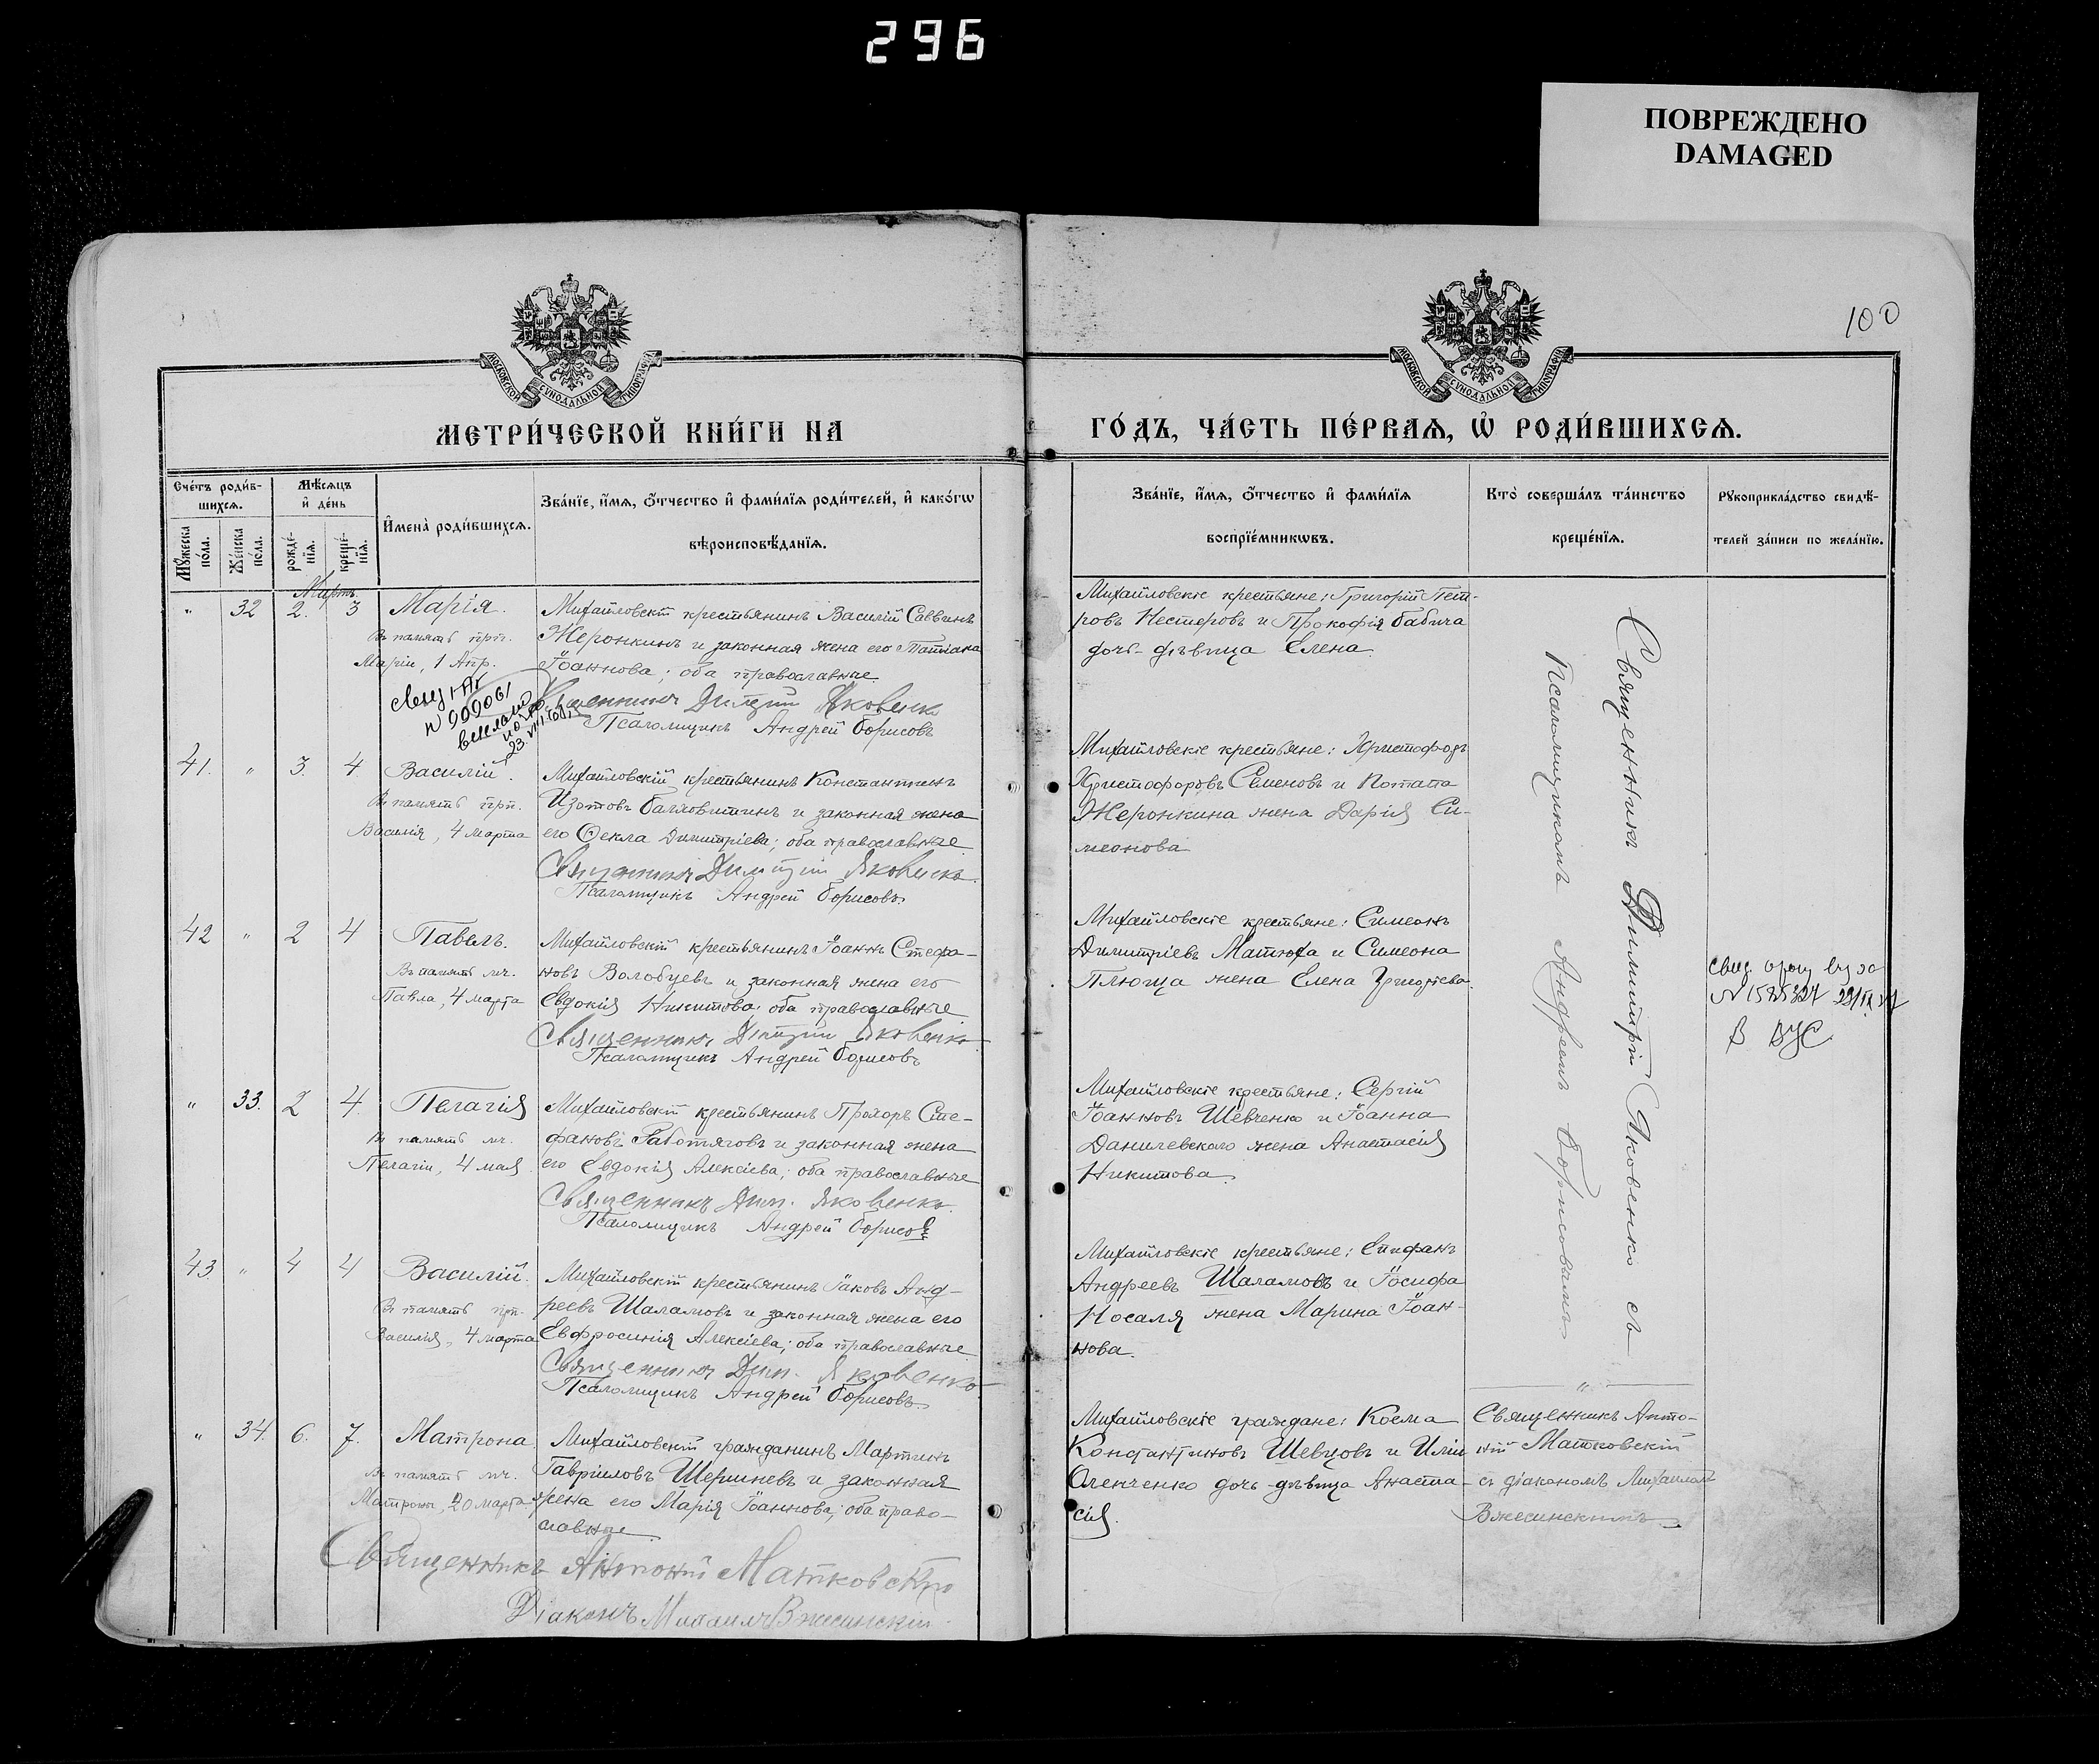 296
ПОВРЕЖДЕНО
DAMAGED
100
МОСКОВСКОЙ СУНОДАЛЬНОЙ ТИПОГРАФІИ
МОСКОВСКОЙ СУНОДАЛЬНОЙ ТИПОГРАФІИ
МЕТРИ́ЧЕСКОЙ КНИ́ГИ НА
ГО́ДЪ, ЧА́СТЬ ПЕ́РВАѦ, Ѡ҆ РОДИ́ВШИХСѦ.
Сче́тъ роди́в-
шихсѧ.
Мѣ́сѧцъ
и҆ де́нь
Мꙋ́жеска
по́ла.
Же́нска
по́ла.
рожде́-
нїѧ.
креще́-
нїѧ.
И҆мена̀ роди́вшихсѧ.
Зва́нїе, и҆́мѧ, ѻ҆́тчество и҆ фами́лїѧ роди́телей, и҆ како́гѡ
вѣроисповѣ́данїѧ.
Зва́нїе, и҆́мѧ, ѻ҆́тчество и҆ фами́лїѧ
воспрїе́мникѡвъ.
Кто̀ соверша́лъ та́инство
креще́нїѧ.
Рꙋкоприкла́дство свидѣ́-
телей за́писи по жела́нїю.
Мартъ
" 32 2. 3 Марія.
Въ память прп.
Маріи, 1 Апр.
Михайловскій крестьянинъ Василій Саввинъ
Жеронкинъ и законная жена его Татіана
Іоаннова; оба православные
Священникъ Димитрій Яковенко
Псаломщикъ Андрей Борисовъ
Михайловскіе крестьяне: Григорій Пет-
ровъ Нестеровъ и Прокофія Бабича
дочь-дѣвица Елена
N 909061
41. " 3. 4 Василій.
Въ память прп.
Василія, 4 марта
Михайловскій крестьянинъ Константинъ
Изотовъ и законная жена
его Ѳекла Димитріева; оба православные
Священникъ Димитрій Яковенко.
Псаломщикъ Андрей Борисовъ.
Михайловскіе крестьяне: Христофоръ
Христофоровъ Семеновъ и Потапа
Жеронкина жена Дарія Си-
меонова
42 " 2 4 Павелъ.
Въ память мч.
Павла, 4 марта
Михайловскій крестьянинъ Іоаннъ Стефа-
новъ Волобуевъ и законная жена его
Евдокія Никитова; оба православные
Священникъ Димитрій Яковенко
Псаломщикъ Андрей Борисовъ
Михайловскіе крестьяне: Симеонъ
Димитріевъ Матюха и Симеона
Плюща жена Елена Григоріева
N 1585324
" 33. 2 4. Пелагія
Въ память мч.
Пелагіи, 4 мая
Михайловскій крестьянинъ Прохоръ Сте-
фановъ Работяговъ и законная жена
его Евдокія Алексіева; оба православные
Священникъ Дим. Яковенко.
Псаломщикъ Андрей Борисовъ
Михайловскіе крестьяне: Сергій
Іоанновъ Шевченко и Іоанна
Данилевскаго жена Анастасія
Никитова.
43. " 4 4 Василій.
Въ память прп.
Василія, 4 марта
Михайловскій крестьянинъ Іаковъ Анд-
реевъ Шаламовъ и законная жена его
Евфросинія Алексіева; оба православные
Священникъ Дим. Яковенко
Псаломщикъ Андрей Борисовъ.
Михайловскіе крестьяне: Епифанъ
Андреевъ Шаламовъ и Іосифа
Носаля жена Марина Іоан-
нова.
Священникъ Димитрій Яковенко съ
Псаломщикомъ Андреемъ Борисовымъ
" 34. 6. 7. Матрона.
Въ память мч.
Матроны, 20 марта
Михайловскій гражданинъ Мартинъ
Гавріиловъ Шершневъ и законная
жена его Марія Іоаннова; оба право-
славные
Священникъ Антоній Матковскій
Діаконъ Михаилъ Вжесинскій
Михайловскіе граждане: Косма
Константиновъ Шевцовъ и Иліи
Оленченко дочь-дѣвица Анаста-
сія.
Священникъ Анто-
ній Матковскій
съ діакономъ Михаиломъ
Вжесинскимъ